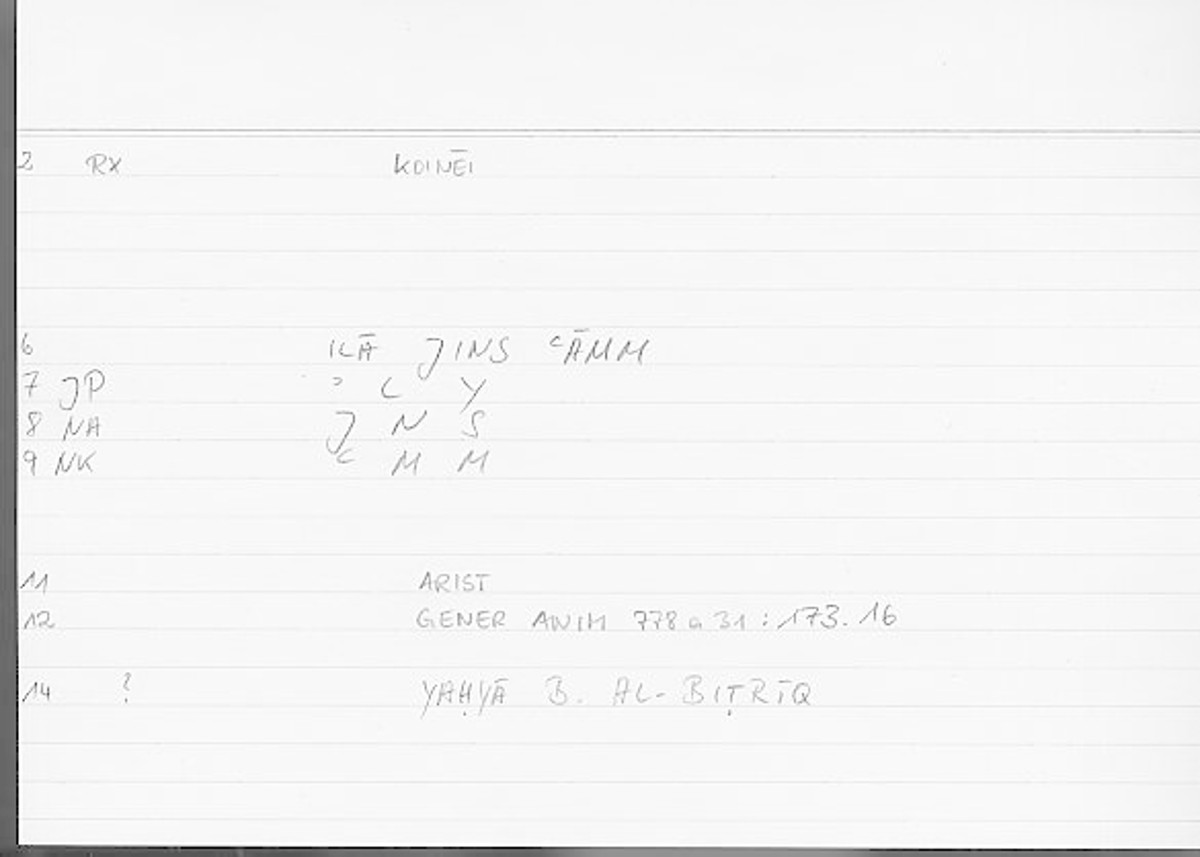 2 RX KOINĒI
6 ILĀ JINS ʿĀMM
7 JP ʾ L Y
8 NA J N S
9 NK ʿ M M
11 ARIST
12 GENER ANIM 778 a 31 : 173. 16
14 ? YAḤYĀ B. AL-BIṬRĪQ